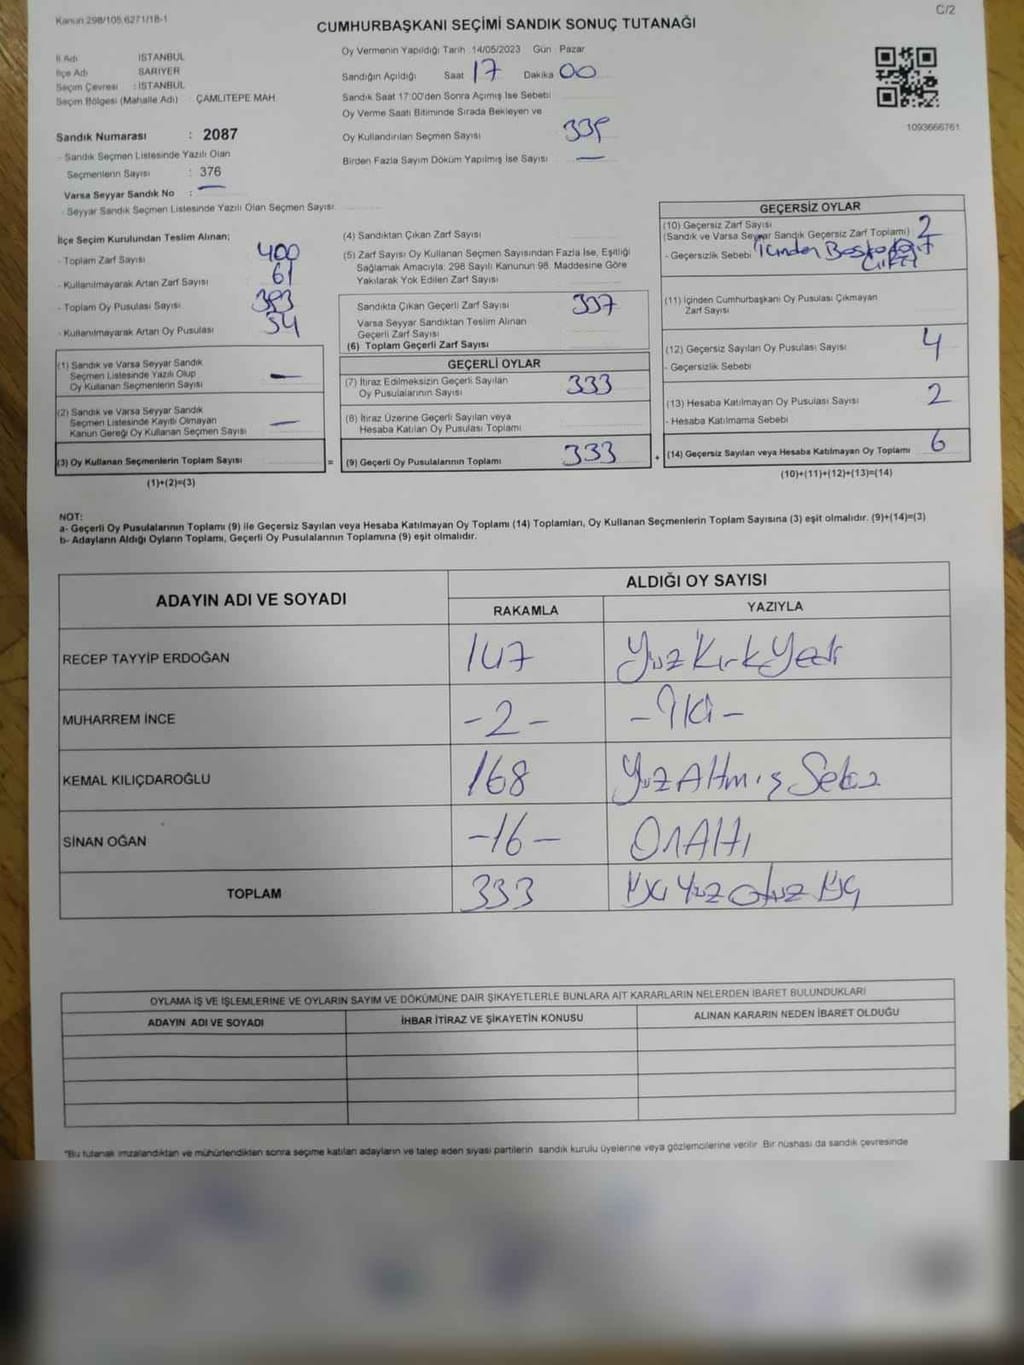 Kanun 298/105,6271/18-1
C/2
CUMHURBAŞKANI SEÇİMİ SANDIK SONUÇ TUTANAĞI
İl Adı : İSTANBUL
İlçe Adı : SARIYER
Seçim Çevresi : İSTANBUL
Seçim Bölgesi (Mahalle Adı) : ÇAMLITEPE MAH
Sandık Numarası : 2087
- Sandık Seçmen Listesinde Yazılı Olan
Seçmenlerin Sayısı : 376
Varsa Seyyar Sandık No : —
- Seyyar Sandık Seçmen Listesinde Yazılı Olan Seçmen Sayısı
Oy Vermenin Yapıldığı Tarih : 14/05/2023 Gün : Pazar
Sandığın Açıldığı Saat 17 Dakika 00
Sandık Saat 17:00'den Sonra Açımış İse Sebebi
Oy Verme Saati Bitiminde Sırada Bekleyen ve
Oy Kullandırılan Seçmen Sayısı 339
Birden Fazla Sayım Döküm Yapılmış İse Sayısı —
1093666761
İlçe Seçim Kurulundan Teslim Alınan;
- Toplam Zarf Sayısı 400
- Kullanılmayarak Artan Zarf Sayısı 61
- Toplam Oy Pusulası Sayısı 393
- Kullanılmayarak Artan Oy Pusulası 54
(1) Sandık ve Varsa Seyyar Sandık
Seçmen Listesinde Yazılı Olup
Oy Kullanan Seçmenlerin Sayısı —
(2) Sandık ve Varsa Seyyar Sandık
Seçmen Listesinde Kayıtlı Olmayan
Kanun Gereği Oy Kullanan Seçmen Sayısı —
(3) Oy Kullanan Seçmenlerin Toplam Sayısı =
(1)+(2)=(3)
(4) Sandıktan Çıkan Zarf Sayısı
(5) Zarf Sayısı Oy Kullanan Seçmen Sayısından Fazla İse, Eşitliği
Sağlamak Amacıyla; 298 Sayılı Kanunun 98. Maddesine Göre
Yakılarak Yok Edilen Zarf Sayısı
Sandıkta Çıkan Geçerli Zarf Sayısı 337
Varsa Seyyar Sandıktan Teslim Alınan
Geçerli Zarf Sayısı
(6) Toplam Geçerli Zarf Sayısı
GEÇERLİ OYLAR
(7) İtiraz Edilmeksizin Geçerli Sayılan
Oy Pusulalarının Sayısı 333
(8) İtiraz Üzerine Geçerli Sayılan veya
Hesaba Katılan Oy Pusulası Toplamı
(9) Geçerli Oy Pusulalarının Toplamı 333 +
GEÇERSİZ OYLAR
(10) Geçersiz Zarf Sayısı
(Sandık ve Varsa Seyyar Sandık Geçersiz Zarf Toplamı) 2
- Geçersizlik Sebebi İçinden Başka
Çıktı
(11) İçinden Cumhurbaşkanı Oy Pusulası Çıkmayan
Zarf Sayısı
(12) Geçersiz Sayılan Oy Pusulası Sayısı 4
- Geçersizlik Sebebi
(13) Hesaba Katılmayan Oy Pusulası Sayısı 2
- Hesaba Katılmama Sebebi
(14) Geçersiz Sayılan veya Hesaba Katılmayan Oy Toplamı 6
(10)+(11)+(12)+(13)=(14)
NOT:
a- Geçerli Oy Pusulalarının Toplamı (9) ile Geçersiz Sayılan veya Hesaba Katılmayan Oy Toplamı (14) Toplamları, Oy Kullanan Seçmenlerin Toplam Sayısına (3) eşit olmalıdır. (9)+(14)=(3)
b- Adayların Aldığı Oyların Toplamı, Geçerli Oy Pusulalarının Toplamına (9) eşit olmalıdır.
ADAYIN ADI VE SOYADI
ALDIĞI OY SAYISI
RAKAMLA YAZIYLA
RECEP TAYYİP ERDOĞAN 147 Yüz Kırk Yedi
MUHARREM İNCE -2- -İki-
KEMAL KILIÇDAROĞLU 168 Yüz Altmış Sekiz
SİNAN OĞAN -16- On Altı
TOPLAM 333 Yüz Otuz Üç
OYLAMA İŞ VE İŞLEMLERİNE VE OYLARIN SAYIM VE DÖKÜMÜNE DAİR ŞİKAYETLERLE BUNLARA AİT KARARLARIN NELERDEN İBARET BULUNDUKLARI
ADAYIN ADI VE SOYADI İHBAR İTİRAZ VE ŞİKAYETİN KONUSU ALINAN KARARIN NEDEN İBARET OLDUĞU
"Bu tutanak imzalandıktan ve mühürlendikten sonra seçime katılan adayların ve talep eden siyasi partilerin sandık kurulu üyelerine veya gözlemcilerine verilir. Bir nüshası da sandık çevresinde